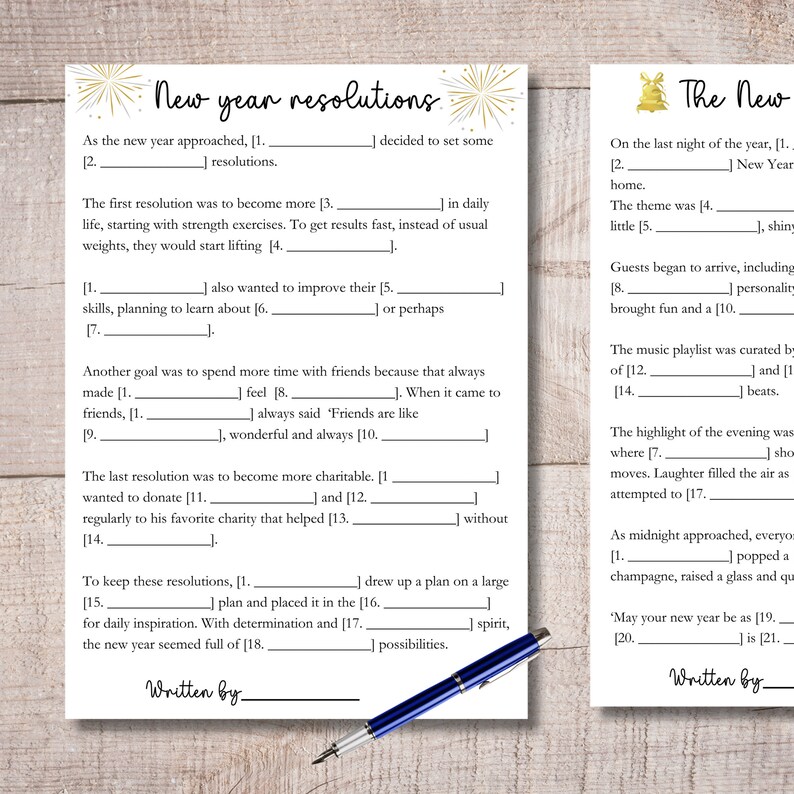 New year resolutions
As the new year approached, [1. ______________] decided to set some
[2. ______________] resolutions.
The first resolution was to become more [3. ______________] in daily
life, starting with strength exercises. To get results fast, instead of usual
weights, they would start lifting [4. ______________].
[1. ______________] also wanted to improve their [5. ______________]
skills, planning to learn about [6. ______________] or perhaps
[7. ______________].
Another goal was to spend more time with friends because that always
made [1. ______________] feel [8. ______________]. When it came to
friends, [1. ______________] always said ‘Friends are like
[9. ________________], wonderful and always [10. ______________]
The last resolution was to become more charitable. [1 ______________]
wanted to donate [11. ______________] and [12. ______________]
regularly to his favorite charity that helped [13. ______________] without
[14. ______________].
To keep these resolutions, [1. ______________] drew up a plan on a large
[15. ______________] plan and placed it in the [16. ______________]
for daily inspiration. With determination and [17. ______________] spirit,
the new year seemed full of [18. ______________] possibilities.
Written by______________
The New
On the last night of the year, [1.
[2. ______________] New Year
home.
The theme was [4. ___________
little [5. ______________], shiny
Guests began to arrive, including
[8. ______________] personality
brought fun and a [10. ________
The music playlist was curated by
of [12. ______________] and [1
[14. ______________] beats.
The highlight of the evening was
where [7. ______________] sho
moves. Laughter filled the air as
attempted to [17. ____________
As midnight approached, everyo
[1. ______________] popped a
champagne, raised a glass and qu
‘May your new year be as [19. __
[20. ______________] is [21. ___
Written by____